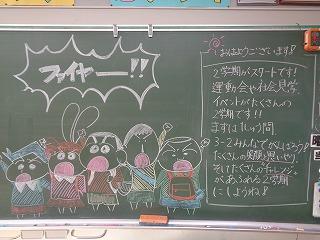 ファイヤー!!
おはようございます!
2学期がスタートです!
運動会や社会見学、
イベントがたくさんの
2学期です!!
まずは1しゅう間、
3-2みんなでがんばろう!
たくさんの笑顔と思いやり、
そしてたくさんのチャレンジ
があふれる2学期
にしようね!